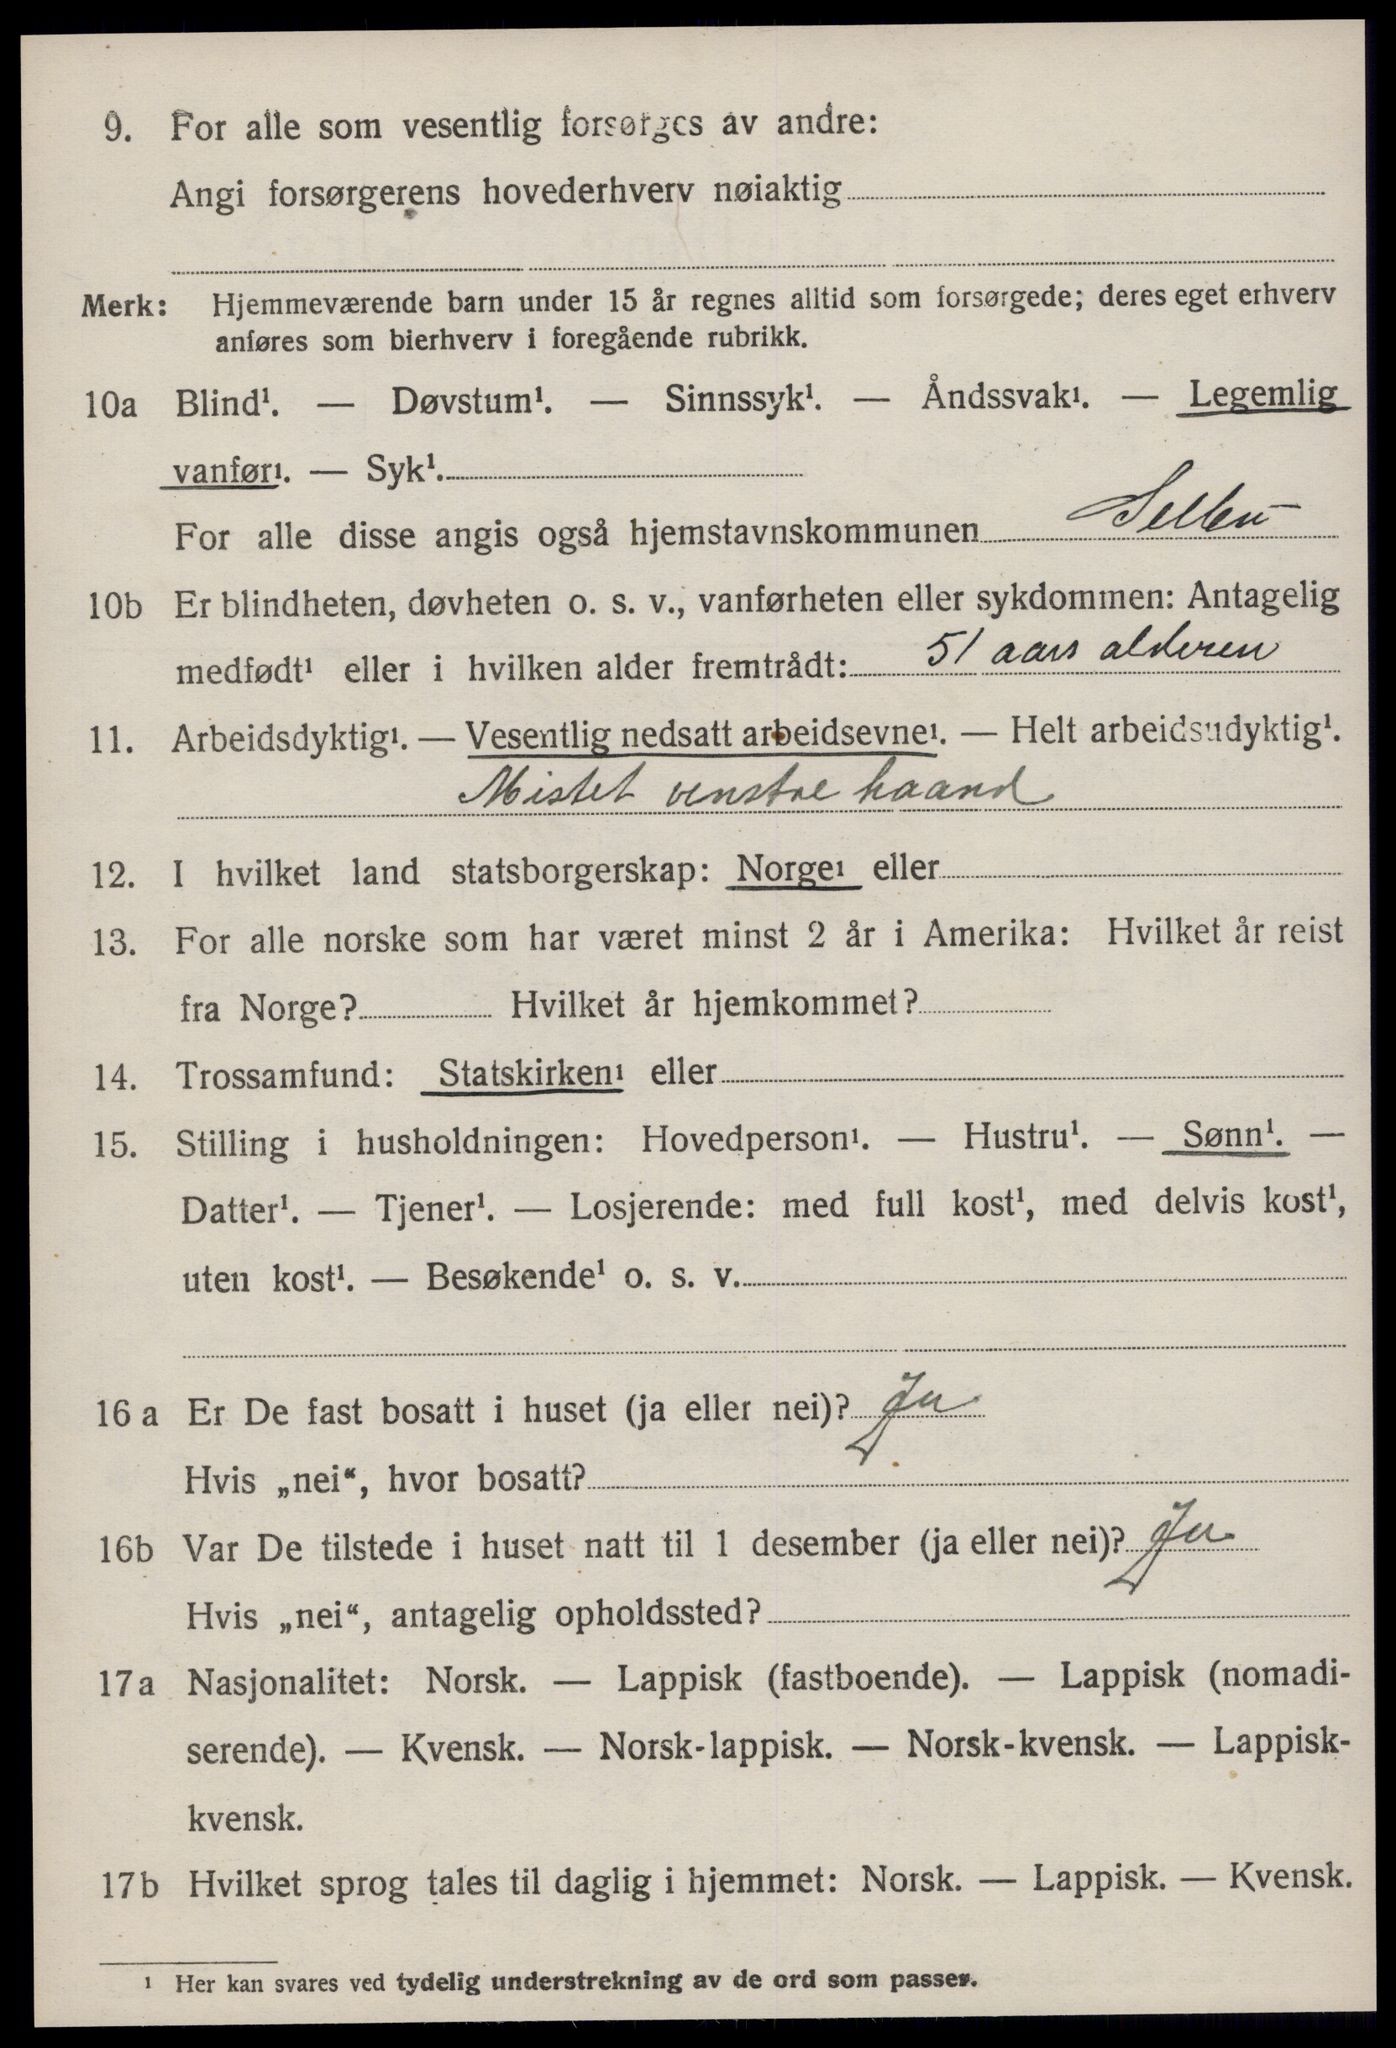 9. For alle som vesentlig forsørges av andre:
Angi forsørgerens hovederhverv nøiaktig
Merk: Hjemmeværende barn under 15 år regnes alltid som forsørgede; deres eget erhverv
anføres som bierhverv i foregående rubrikk.
10a Blind¹. — Døvstum¹. — Sinnssyk¹. — Åndssvak¹. — Legemlig
vanfør¹. — Syk¹.
For alle disse angis også hjemstavnskommunen Selbu
10b Er blindheten, døvheten o. s. v., vanførheten eller sykdommen: Antagelig
medfødt¹ eller i hvilken alder fremtrådt: 51 aars alderen
11. Arbeidsdyktig¹. — Vesentlig nedsatt arbeidsevne¹. — Helt arbeidsudyktig¹.
Mistet venstre haand
12. I hvilket land statsborgerskap: Norge¹ eller
13. For alle norske som har været minst 2 år i Amerika: Hvilket år reist
fra Norge? Hvilket år hjemkommet?
14. Trossamfund: Statskirken¹ eller
15. Stilling i husholdningen: Hovedperson¹. — Hustru¹. — Sønn¹. —
Datter¹. — Tjener¹. — Losjerende: med full kost¹, med delvis kost¹,
uten kost¹. — Besøkende¹ o. s. v.
16 a Er De fast bosatt i huset (ja eller nei)? Ja
Hvis „nei“, hvor bosatt?
16b Var De tilstede i huset natt til 1 desember (ja eller nei)? Ja
Hvis „nei“, antagelig opholdssted?
17a Nasjonalitet: Norsk. — Lappisk (fastboende). — Lappisk (nomadi-
serende). — Kvensk. — Norsk-lappisk. — Norsk-kvensk. — Lappisk-
kvensk.
17b Hvilket sprog tales til daglig i hjemmet: Norsk. — Lappisk. — Kvensk.
¹ Her kan svares ved tydelig understrekning av de ord som passer.